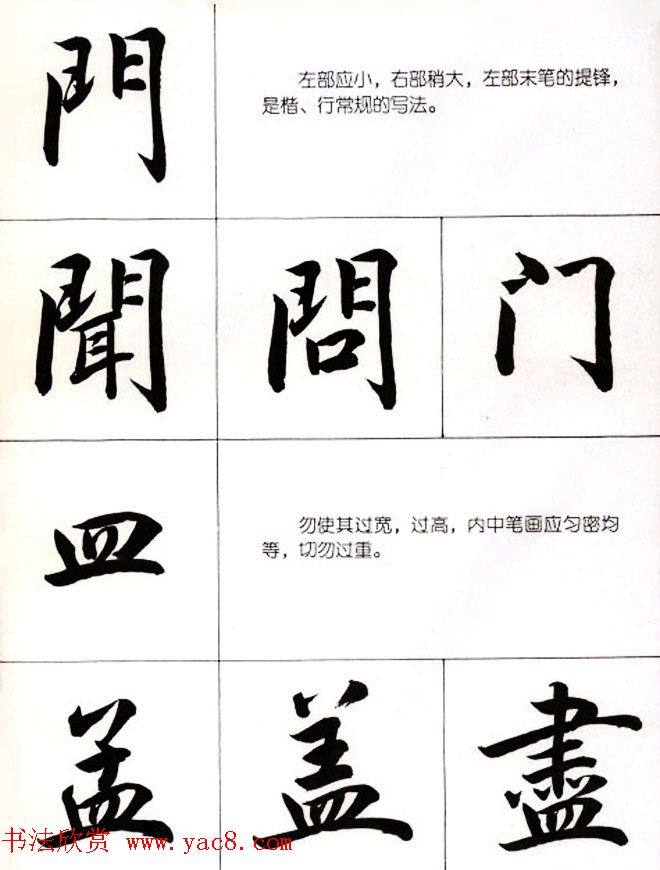 門
左部应小，右部稍大，左部末笔的提锋，
是楷、行常规的写法。
聞 問 门
皿
勿使其过宽，过高，内中笔画应匀密均
等，切勿过重。
盖 盡
书法欣赏 www.yac8.com